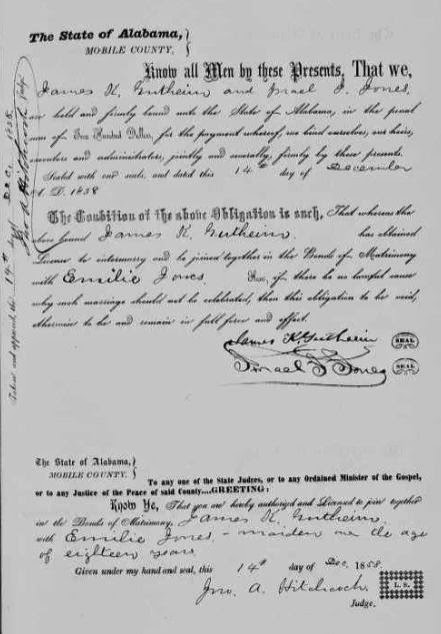 The State of Alabama,
MOBILE COUNTY.
Know all Men by these Presents, That we,
James K. Gutheim and Israel I. Jones
are held and firmly bound unto the State of Alabama, in the penal
sum of Two Hundred Dollars, for the payment whereof, we bind ourselves, our heirs,
executors and administrators, jointly and severally, firmly by these presents.
Sealed with our seals, and dated this 14th day of December
A. D. 1858
The Condition of the above Obligation is such, That whereas the
above bound James K. Gutheim has obtained
License to intermarry and be joined together in the Bonds of Matrimony
with Emilie Jones. Now, if there be no lawful cause
why such marriage should not be celebrated, then this obligation to be void,
otherwise to be and remain in full force and effect.
James K. Gutheim SEAL
Israel I Jones SEAL
Taken and approved, this 14th day of Dec. 1858.
Jno A Hitchcock
The State of Alabama,
MOBILE COUNTY.
To any one of the State Judges, or to any Ordained Minister of the Gospel,
or to any Justice of the Peace of said County....GREETING:
Know Ye, That you are hereby authorized and Licensed to join together
in the Bonds of Matrimony, James K. Gutheim
with Emilie Jones - maiden over the age
of eighteen years
Given under my hand and seal, this 14th day of Dec. 1858.
Jno. A. Hitchcock. L. S.
Judge.